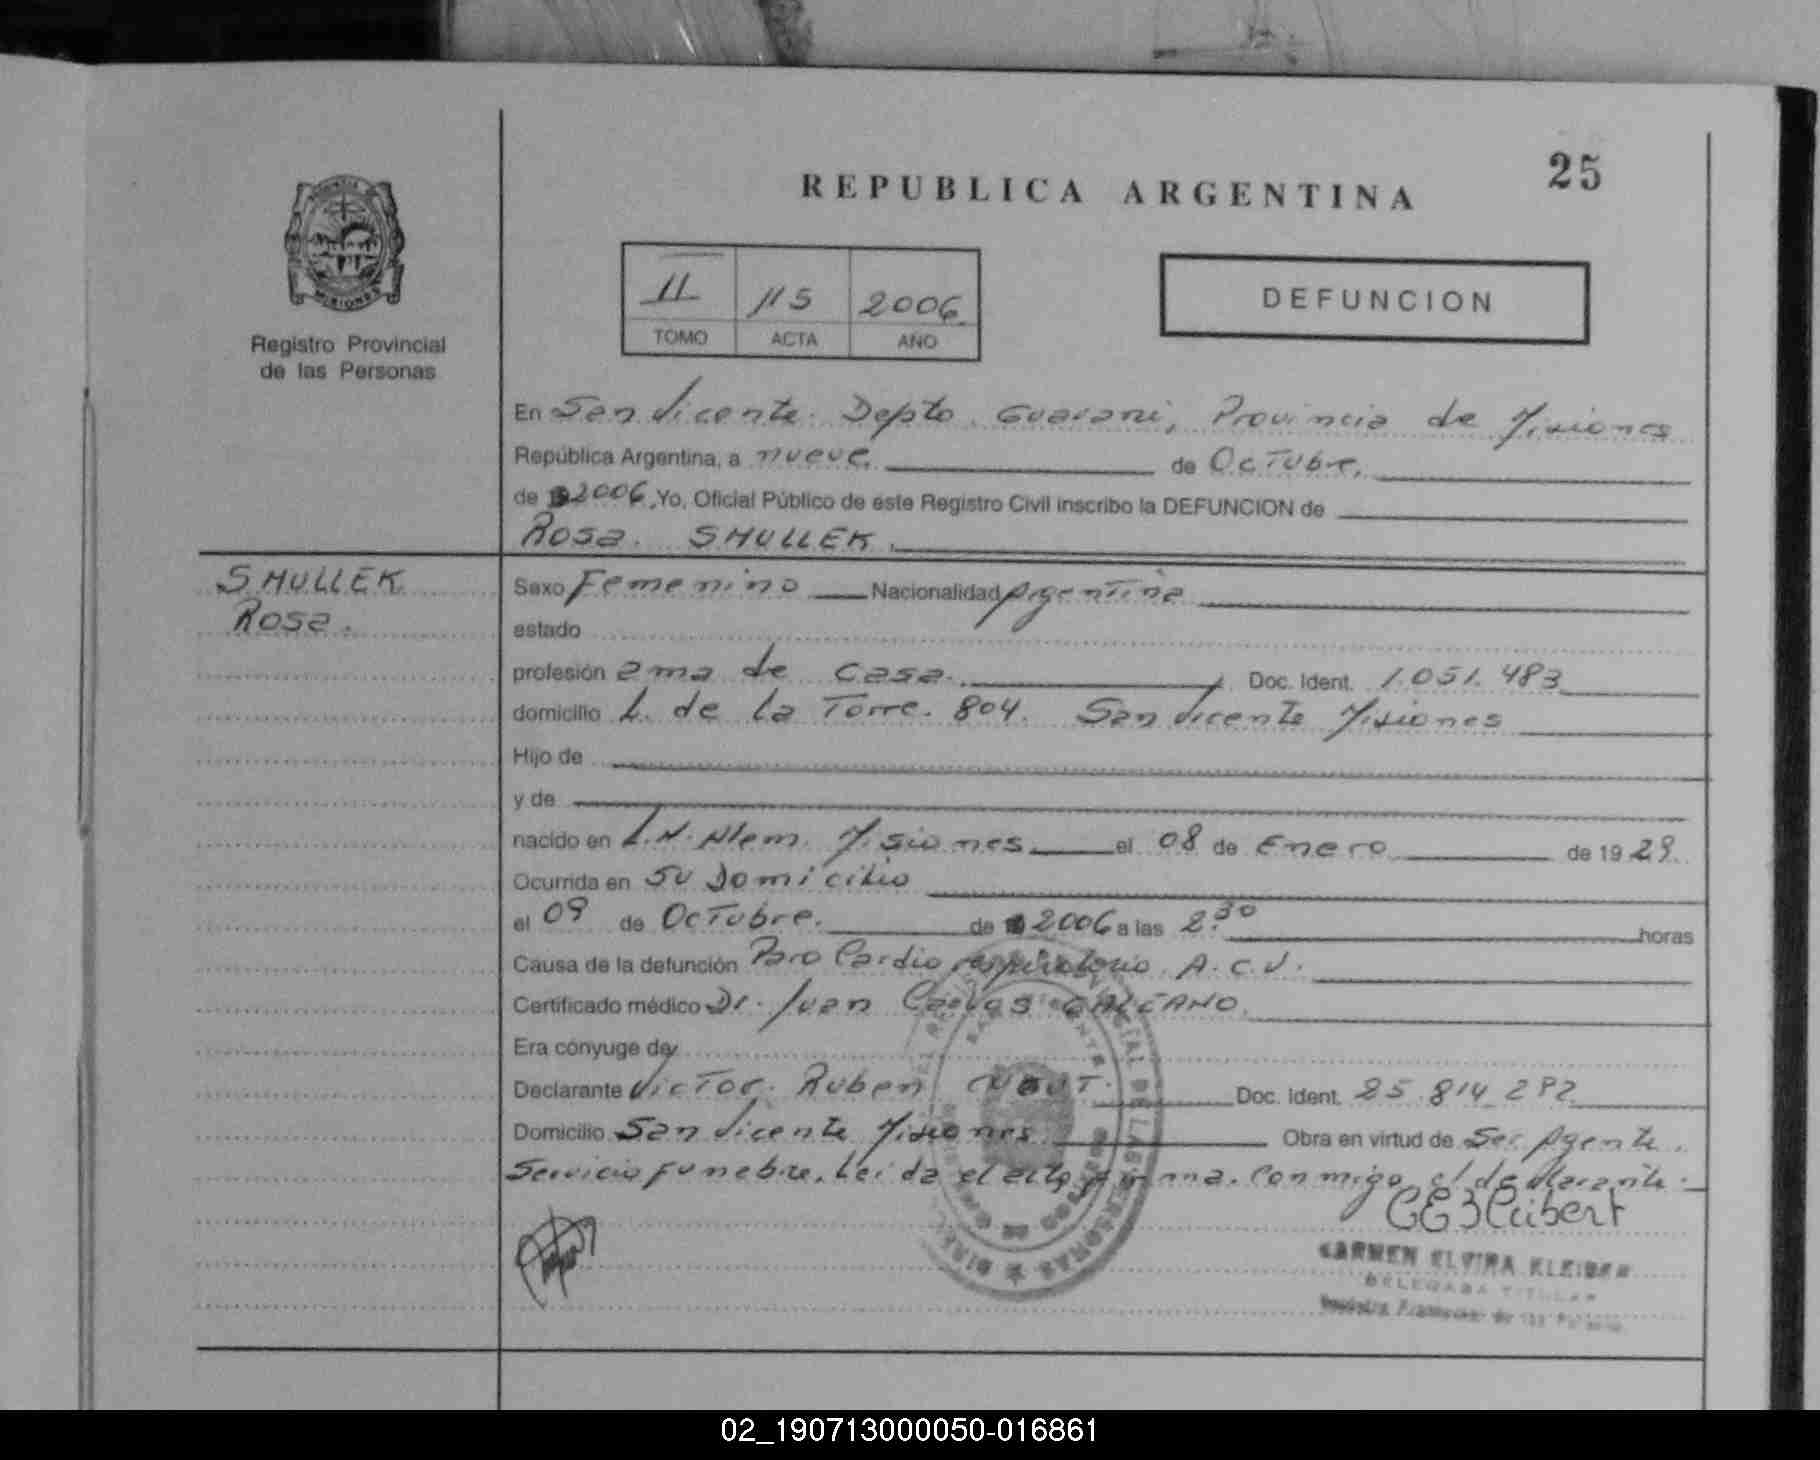 25
REPUBLICA ARGENTINA
MISIONES
Registro Provincial
de las Personas
11 115 2006
TOMO ACTA AÑO
DEFUNCION
En San Vicente. Depto. Guarani, Provincia de Misiones
República Argentina, a nueve. de Octubre.
de 2006. Yo, Oficial Público de este Registro Civil inscribo la DEFUNCION de
Rosa. SMULLEK.
SMULLEK
Rosa.
Sexo Femenino Nacionalidad Argentina
estado
profesión ama de casa. Doc. Ident. 1.051.483
domicilio L. de la Torre. 804. San Vicente Misiones
Hijo de
y de
nacido en L.N. Alem. Misiones el 08 de Enero de 19 29.
Ocurrida en su Domicilio
el 09 de Octubre. de 2006 a las 2.30 horas
Causa de la defunción Paro Cardio respiratorio. A.C.V.
Certificado médico Dr. Juan Carlos GALEANO.
Era cónyuge de
Declarante Victor. Ruben Doc. Ident. 25.814.292
Domicilio San Vicente Misiones Obra en virtud de Ser Agente.
Servicio Funebre. Leida el acta firma. Conmigo el declarante.
CARMEN ELVIRA KLEIBER
DELEGADA TITULAR
02_190713000050-016861